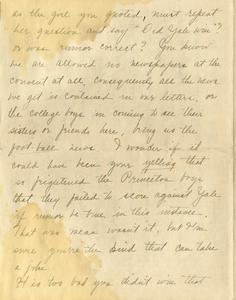 as the girl you quoted, must repeat
her question and say "Did Yale win"?
or was rumor correct? You know
we are allowed no newspapers at the
convent at all, consequently all the news
we get is contained in our letters, or
the college boys in coming to see their
sisters or friends here, bring us the
foot ball news. I wonder if it
could have been your yelling that
so frightened the Princeton boys
that they failed to score against Yale
if rumor be true, in this instance.
That was mean wasn't it, but I'm
sure you're the kind that can take
a joke.
It is too bad you didn't win that